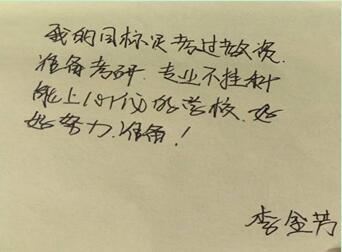 我的目标是考过教资.
准备考研.专业不挂科
能上心仪的学校.好
好努力.准备!
李金芳